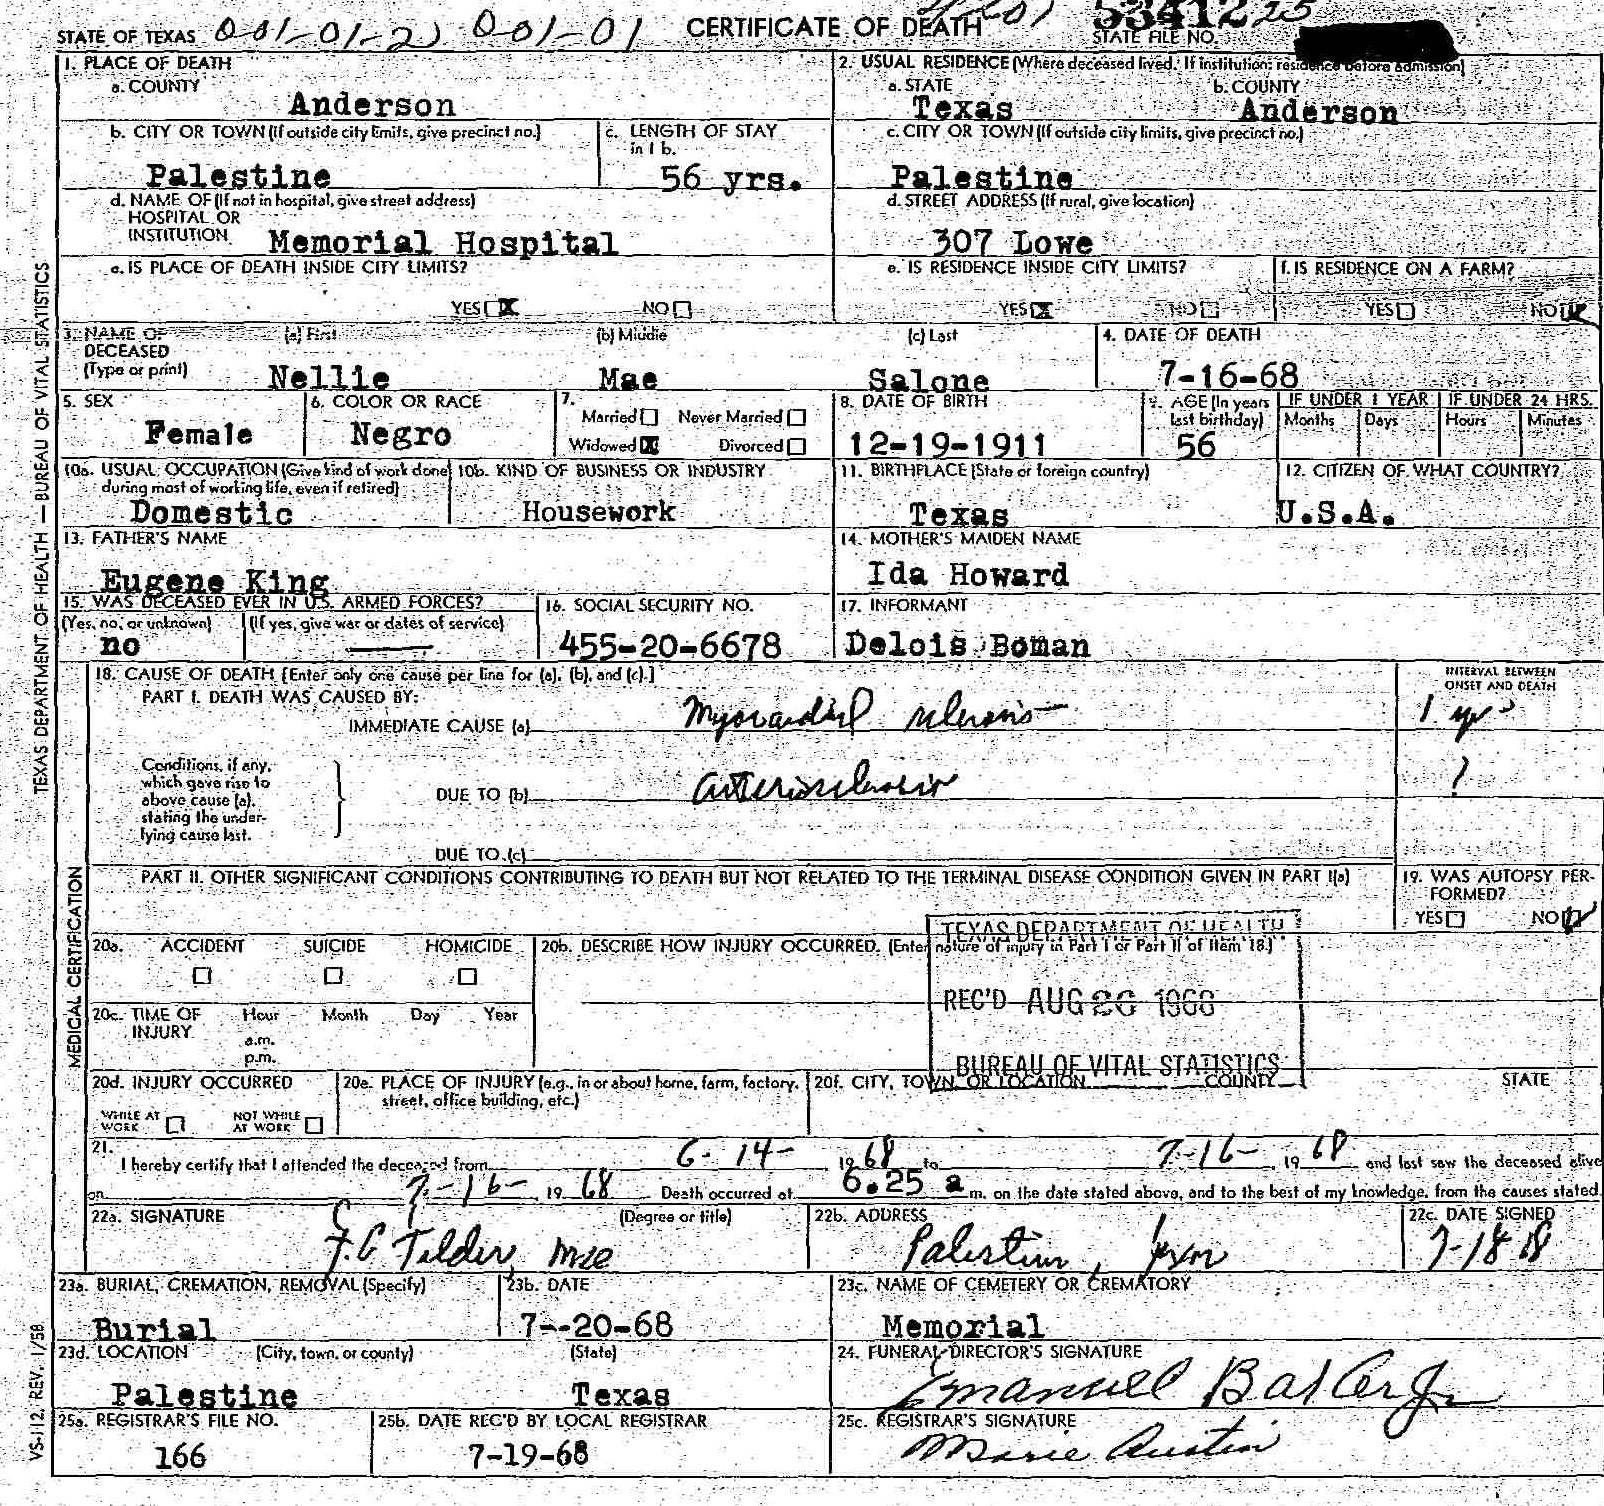 STATE OF TEXAS 001-01-2) 001-01 CERTIFICATE OF DEATH
STATE FILE NO.
1. PLACE OF DEATH
a. COUNTY
Anderson
2. USUAL RESIDENCE (Where deceased lived. If institution: residence before admission)
a. STATE
Texas
b. COUNTY
Anderson
b. CITY OR TOWN (If outside city limits, give precinct no.)
Palestine
c. LENGTH OF STAY
in 1 b.
56 yrs.
c. CITY OR TOWN (If outside city limits, give precinct no.)
Palestine
d. NAME OF (If not in hospital, give street address)
HOSPITAL OR
INSTITUTION Memorial Hospital
d. STREET ADDRESS (If rural, give location)
307 Lowe
e. IS PLACE OF DEATH INSIDE CITY LIMITS?
YES X NO
e. IS RESIDENCE INSIDE CITY LIMITS?
YES X NO
f. IS RESIDENCE ON A FARM?
YES NO
3. NAME OF
DECEASED
(Type or print)
(a) First
Nellie
(b) Middle
Mae
(c) Last
Salone
4. DATE OF DEATH
7-16-68
5. SEX
Female
6. COLOR OR RACE
Negro
7.
Married Never Married
Widowed X Divorced
8. DATE OF BIRTH
12-19-1911
9. AGE (In years
last birthday)
56
IF UNDER 1 YEAR
Months Days
IF UNDER 24 HRS.
Hours Minutes
10a. USUAL OCCUPATION (Give kind of work done
during most of working life, even if retired)
Domestic
10b. KIND OF BUSINESS OR INDUSTRY
Housework
11. BIRTHPLACE (State or foreign country)
Texas
12. CITIZEN OF WHAT COUNTRY?
U.S.A.
13. FATHER'S NAME
Eugene King
14. MOTHER'S MAIDEN NAME
Ida Howard
15. WAS DECEASED EVER IN U.S. ARMED FORCES?
(Yes, no, or unknown) (If yes, give war or dates of service)
no
16. SOCIAL SECURITY NO.
455-20-6678
17. INFORMANT
Delois Boman
18. CAUSE OF DEATH [Enter only one cause per line for (a), (b), and (c).]
PART I. DEATH WAS CAUSED BY:
IMMEDIATE CAUSE (a) Myocardial sclerosis
INTERVAL BETWEEN
ONSET AND DEATH
1 yr
Conditions, if any,
which gave rise to
above cause (a),
stating the under-
lying cause last.
DUE TO (b) arteriosclerosis
?
DUE TO (c)
PART II. OTHER SIGNIFICANT CONDITIONS CONTRIBUTING TO DEATH BUT NOT RELATED TO THE TERMINAL DISEASE CONDITION GIVEN IN PART I(a)
19. WAS AUTOPSY PER-
FORMED?
YES NO
20a. ACCIDENT SUICIDE HOMICIDE
20b. DESCRIBE HOW INJURY OCCURRED. (Enter nature of injury in Part I or Part II of Item 18.)
TEXAS DEPARTMENT OF HEALTH
REC'D AUG 26 1968
BUREAU OF VITAL STATISTICS
20c. TIME OF
INJURY
Hour Month Day Year
a.m.
p.m.
20d. INJURY OCCURRED
WHILE AT
WORK
NOT WHILE
AT WORK
20e. PLACE OF INJURY (e.g., in or about home, farm, factory,
street, office building, etc.)
20f. CITY, TOWN, OR LOCATION COUNTY STATE
21.
I hereby certify that I attended the deceased from 6-14- 1968 to 7-16- 1968 and last saw the deceased alive
on 7-16- 1968 Death occurred at 6:25 a m. on the date stated above, and to the best of my knowledge, from the causes stated.
22a. SIGNATURE (Degree or title)
22b. ADDRESS
Palestine
22c. DATE SIGNED
7-18 68
23a. BURIAL, CREMATION, REMOVAL (Specify)
Burial
23b. DATE
7--20-68
23c. NAME OF CEMETERY OR CREMATORY
Memorial
23d. LOCATION (City, town, or county) (State)
Palestine Texas
24. FUNERAL DIRECTOR'S SIGNATURE
Emanuel Baker Jr
25a. REGISTRAR'S FILE NO.
166
25b. DATE REC'D BY LOCAL REGISTRAR
7-19-68
25c. REGISTRAR'S SIGNATURE
Marie Austin
TEXAS DEPARTMENT OF HEALTH — BUREAU OF VITAL STATISTICS
MEDICAL CERTIFICATION
VS-112, REV. 1/58